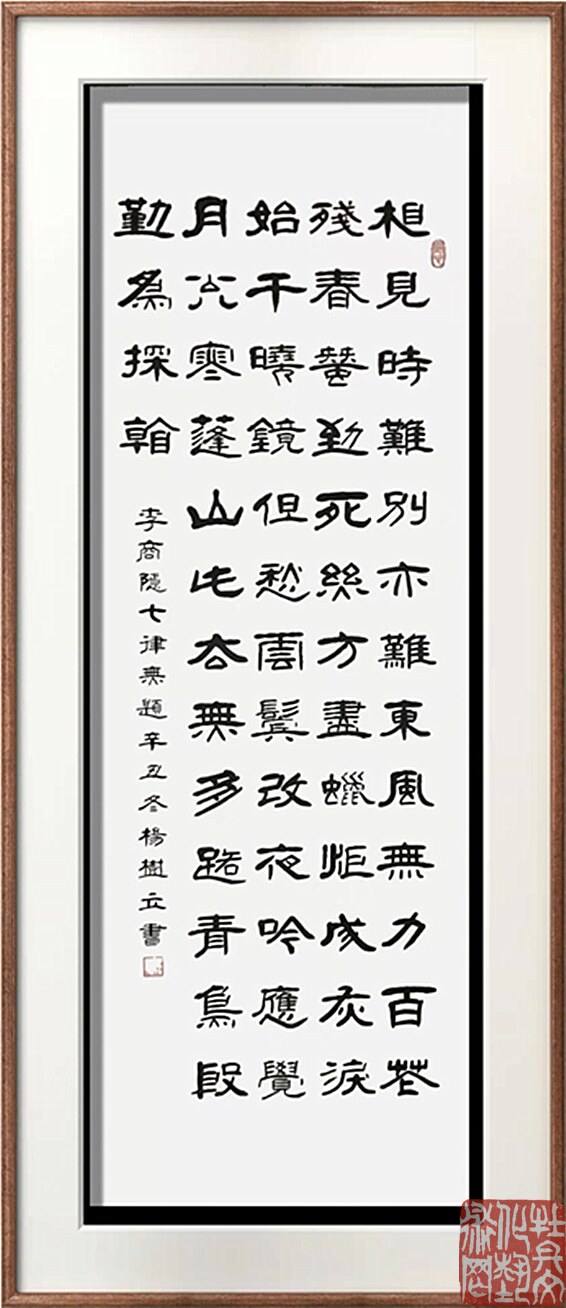 相見時難別亦難東風無力百花
殘春蠶到死絲方盡蠟炬成灰淚
始干曉鏡但愁雲鬢改夜吟應覺
月光寒蓬山此去無多路青鳥殷
勤為探看
李商隱七律無題辛丑冬楊樹立書